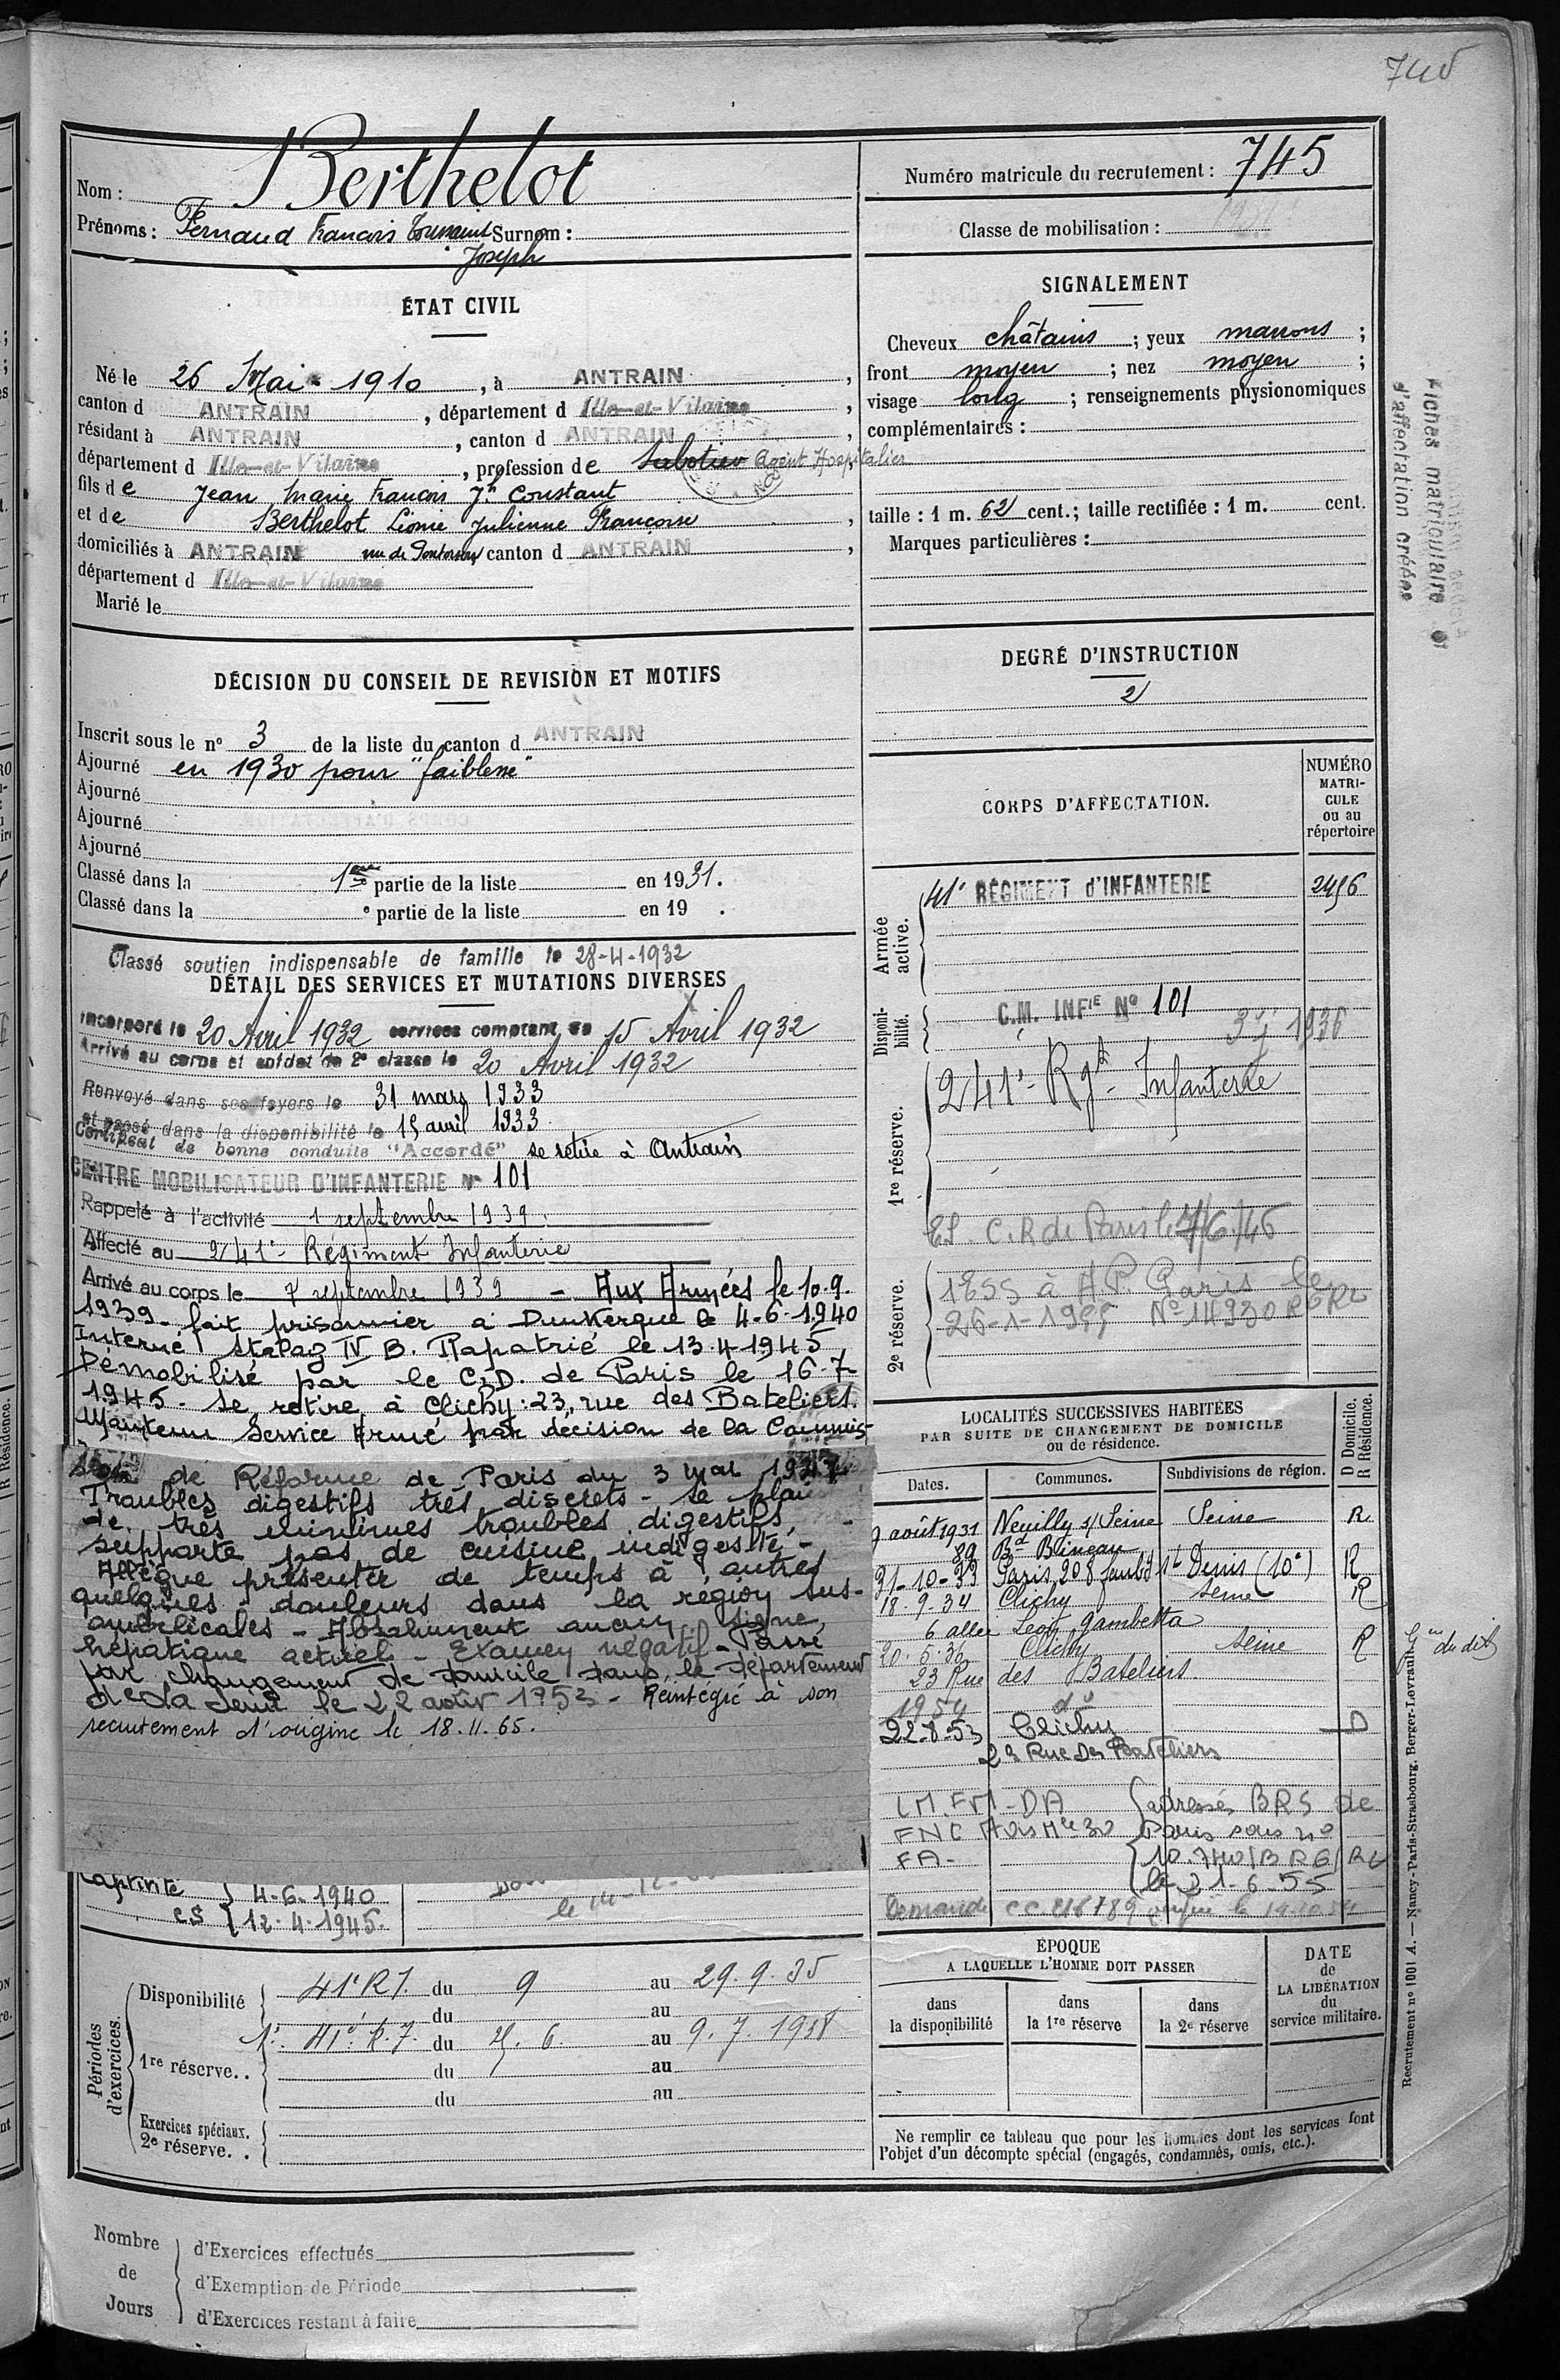 745
Nom : Berthelot
Prénoms : Fernand Francois Toussaint Surnom :
Joseph
Numéro matricule du recrutement : 745
Classe de mobilisation :
ÉTAT CIVIL
Né le 26 Mai 1910, à ANTRAIN,
canton d ANTRAIN, département d Ille-et-Vilaine,
résidant à ANTRAIN, canton d ANTRAIN,
département d Ille-et-Vilaine, profession de Sabotier Agent Hospitalier
fils de Jean Marie Francois Jh Constant
et de Berthelot Léonie Julienne Françoise,
domiciliés à ANTRAIN rue de Pontorson canton d ANTRAIN,
département d Ille-et-Vilaine
Marié le
SIGNALEMENT
Cheveux châtains ; yeux marrons ;
front moyen ; nez moyen ;
visage long ; renseignements physionomiques
complémentaires :
taille : 1 m. 62 cent.; taille rectifiée : 1 m. cent.
Marques particulières :
Fiches matriculaire et
d'affectation créées
DÉCISION DU CONSEIL DE REVISION ET MOTIFS
Inscrit sous le n° 3 de la liste du canton d ANTRAIN
Ajourné en 1930 pour "faiblesse"
Ajourné
Ajourné
Ajourné
Classé dans la 1ere partie de la liste en 1931.
Classé dans la e partie de la liste en 19 .
DEGRÉ D'INSTRUCTION
2
CORPS D'AFFECTATION.
NUMÉRO
MATRI-
CULE
ou au
répertoire
Armée
active.
41e RÉGIMENT d'INFANTERIE 2456
Disponi-
bilité.
C.M. INFIE No 101
1936
1re réserve.
241e Rgt Infanterie
C.R de Paris le 7/6/45
2e réserve.
à A.P. Paris le
26-1-1955 No 14930
Classé soutien indispensable de famille le 28-4-1932
DÉTAIL DES SERVICES ET MUTATIONS DIVERSES
Incorporé le 20 Avril 1932 services comptant du 15 Avril 1932
Arrivé au corps et soldat de 2e classe le 20 Avril 1932
Renvoyé dans ses foyers le 31 mars 1933
et passé dans la disponibilité le 15 avril 1933
Certificat de bonne conduite "Accordé" se retire à Antrain
CENTRE MOBILISATEUR D'INFANTERIE No 101
Rappelé à l'activité 1 septembre 1939.
Affecté au 241e Régiment Infanterie
Arrivé au corps le 7 septembre 1939 - Aux Armées le 10.9.
1939 - fait prisonnier à Dunkerque le 4-6-1940
Interné Stalag IV B. Rapatrié le 13.4.1945
Démobilisé par le C.D. de Paris le 16-7-
1945 - se retire à Clichy : 23, rue des Bateliers.
Maintenu Service Armé par décision de la Commis-
sion de Réforme de Paris du 3 mai 1947
Troubles digestifs très discrets - se plaint
de très minimes troubles digestifs,
supporte pas de cuisine indigeste -
Allègue présenter de temps à autres
quelques douleurs dans la région sus-
ombilicales - Absolument aucun signe
hépatique actuel - Examen négatif - Passé
par changement de domicile dans le département
de la Seine le 22 août 1953 - Réintégré à son
recrutement d'origine le 18.11.65.
LOCALITÉS SUCCESSIVES HABITÉES
PAR SUITE DE CHANGEMENT DE DOMICILE
ou de résidence.
D Domicile.
R Résidence.
Dates. Communes. Subdivisions de région.
9 août 1931 Neuilly s/ Seine Seine R
89 Bd Bineau
31-10-33 Paris, 208 faubg St Denis (10e) R
18.9.34 Clichy Seine R
6 allée Léon Gambetta
20.5.36 Clichy Seine R
23 Rue des Bateliers
1954 do
22-8-53 Clichy D
23 Rue Des Bateliers
LM. FM - DA adressés BRS de
FNC Paris sous no
FA - 10.740/BRG/RL
le 21-6-55
Demande
captivité 4-6-1940
CS 12-4-1945.
Périodes
d'exercices.
Disponibilité 41e R.I. du 9 au 29.9.35
du au
1re réserve.. 41e R.I. du 6. au 9.7.1938
du au
du au
Exercices spéciaux.
2e réserve. .
ÉPOQUE
A LAQUELLE L'HOMME DOIT PASSER
dans
la disponibilité
dans
la 1re réserve
dans
la 2e réserve
DATE
de
LA LIBÉRATION
du
service militaire.
Ne remplir ce tableau que pour les hommes dont les services font
l'objet d'un décompte spécial (engagés, condamnés, omis, etc.).
Recrutement n° 1001 A. — Nancy-Paris-Strasbourg, Berger-Levrault
Nombre
de
Jours
d'Exercices effectués
d'Exemption de Période
d'Exercices restant à faire
R Résidence.